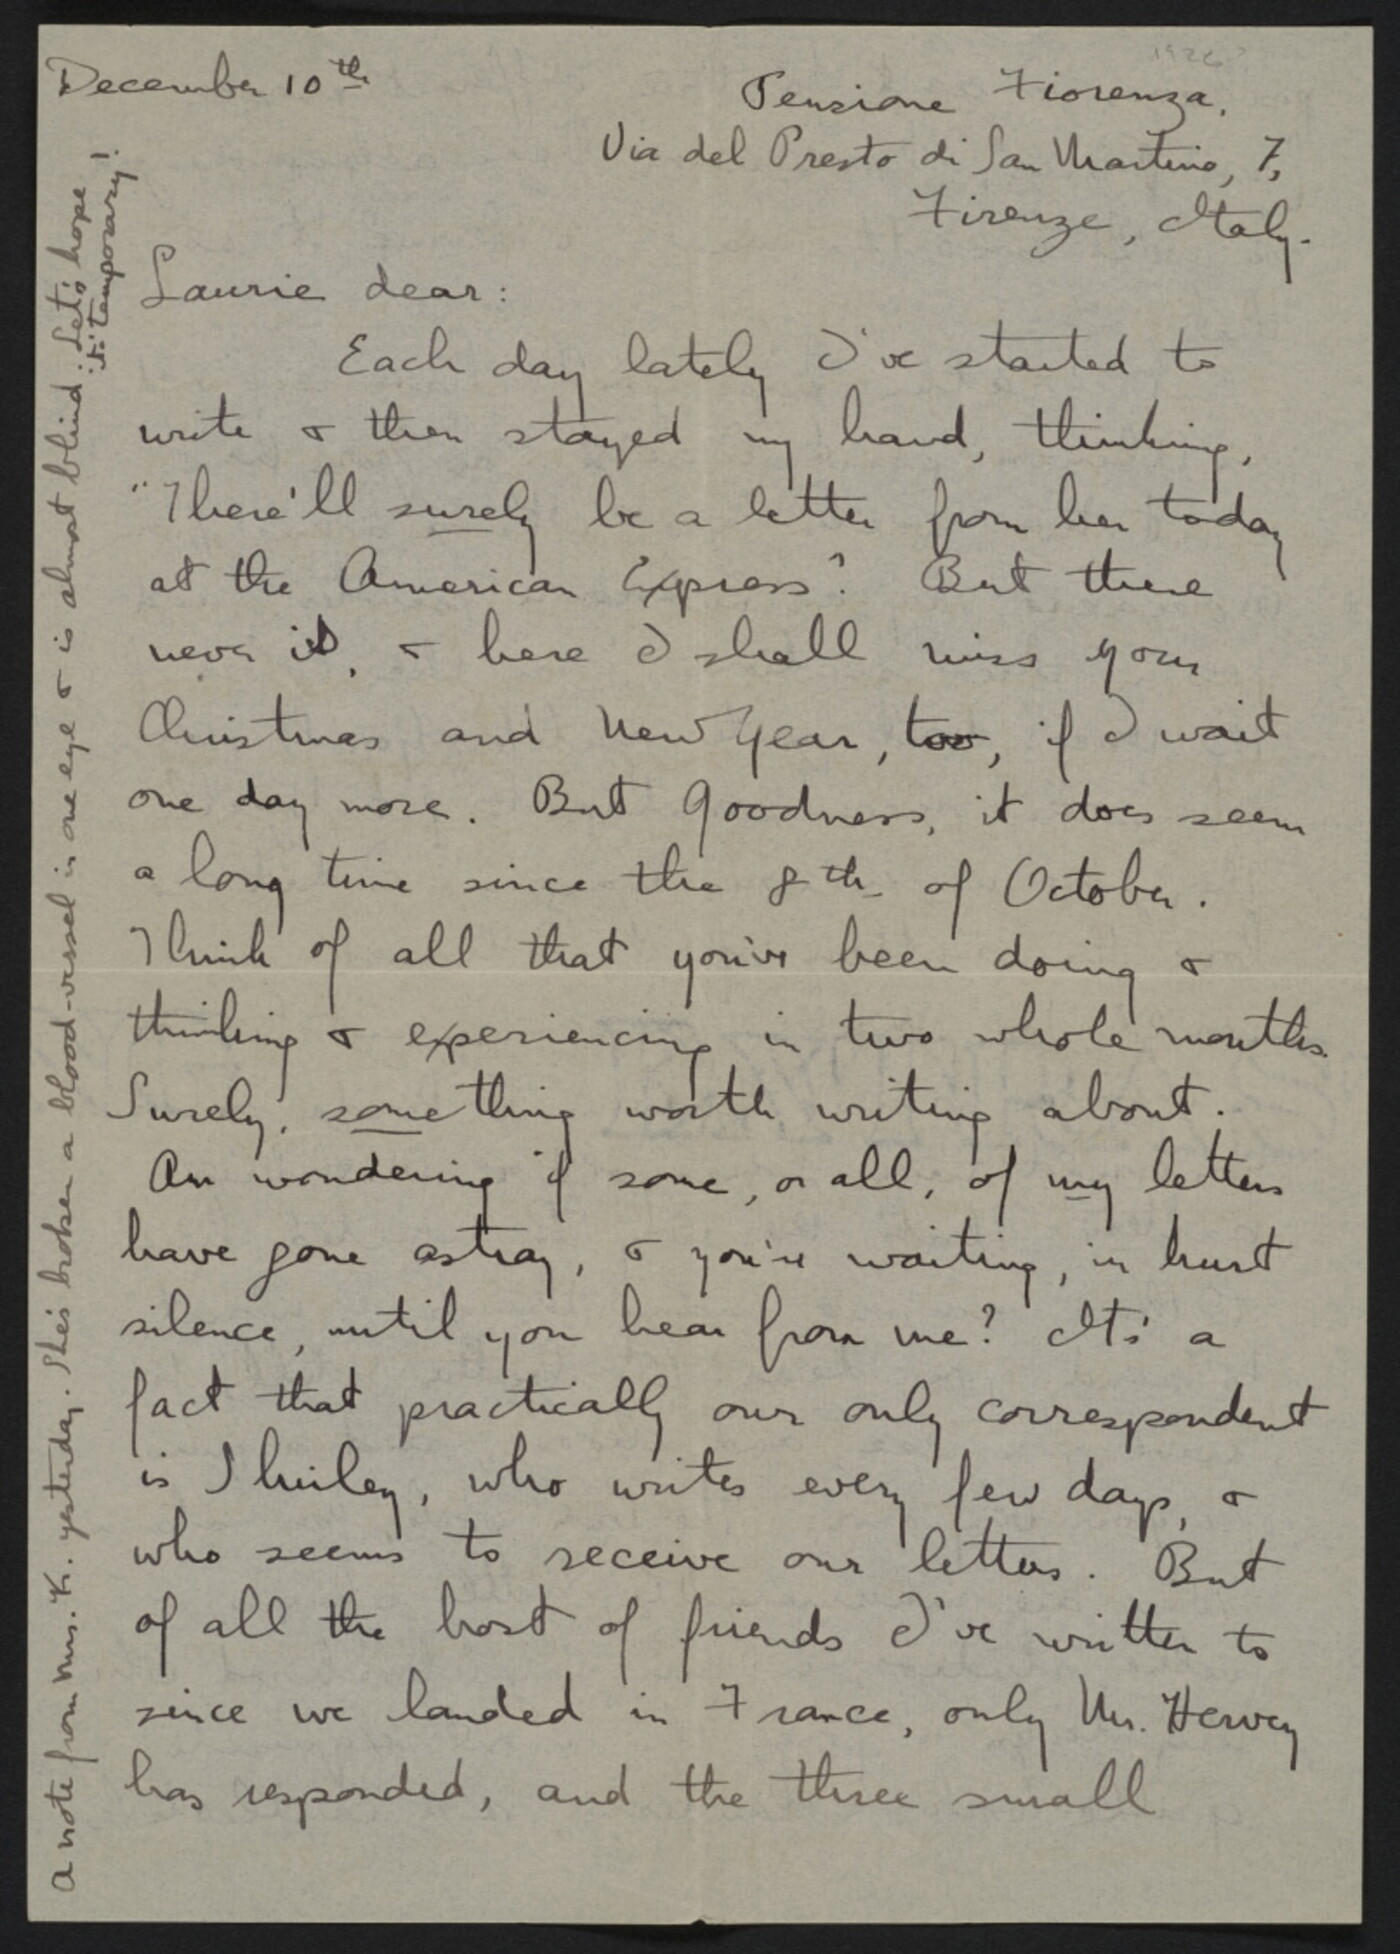 1926?
December 10th
Pensione Fiorenza,
Via del Presto di San Martino, 7,
Firenze, Italy.
Laurie dear:
Each day lately I've started to
write & then stayed my hand, thinking,
"There'll surely be a letter from her today
at the American Express". But there
never is, & here I shall miss your
Christmas and New Year, too, if I wait
one day more. But Goodness, it does seem
a long time since the 8th of October.
Think of all that you've been doing &
thinking & experiencing in two whole months.
Surely, something worth writing about.
Am wondering if some, or all, of my letters
have gone astray, & you're waiting, in hurt
silence, until you hear from me? It's a
fact that practically our only correspondent
is Shirley, who writes every few days, &
who seems to receive our letters. But
of all the host of friends I've written to
since we landed in France, only Mr. Hervey
has responded, and the three small
A note from Mrs. K. yesterday. She's broken a blood-vessel in one eye & is almost blind. Let's hope
it's temporary!